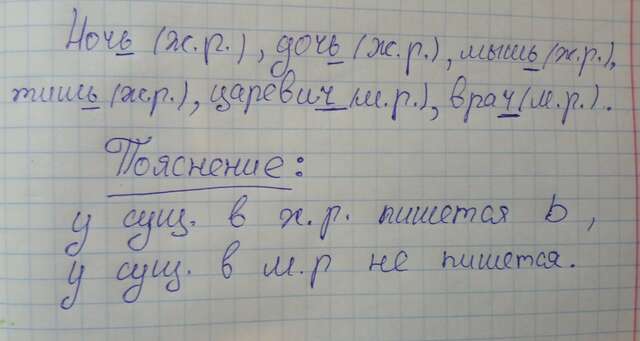 Ночь (ж.р.), дочь (ж.р.), мышь (ж.р.),
тишь (ж.р.), царевич (м.р.), врач (м.р.).
Пояснение:
у сущ. в ж.р. пишется ь,
у сущ. в м.р не пишется.